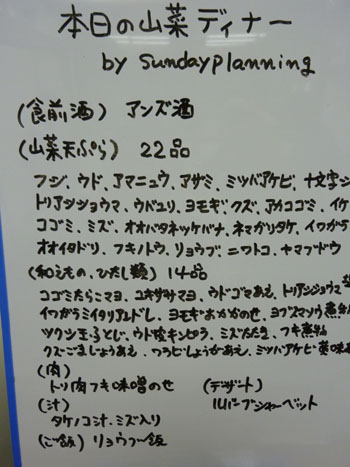 本日の山菜ディナー
by sundayplanning
(食前酒) アンズ酒
(山菜天ぷら) 22品
フジ、ウド、アマニュウ、アザミ、ミツバアケビ、十文字シ
トリアシショウマ、ウバユリ、ヨモギ、クズ、アカコゴミ、イケ
コゴミ、ミズ、オオバタネツケバナ、ネマガリタケ、イワガラ
オオイタドリ、フキノトウ、リョウブ、ニワトコ、ヤマブドウ
(和えもの、ひたし類) 14品
コゴミたらこマヨ、ユキザサマヨ、ウドゴマあえ、トリアシショウマ
イワガラミイタリアドレし、ヨモギおかかのせ、ヨブスマソウ煮
ツクシ玉子とじ、ウド皮キンピラ、ミズたたき、フキ煮物
クズごまじょうあえ、わらびしょうがあえ、ミツバアケビ薬味
(肉)
トリ肉フキ味噌のせ (デザート)
(汁) ルバーブシャーベット
タケノコ汁、ミズ入り
(ご飯) リョウブ飯